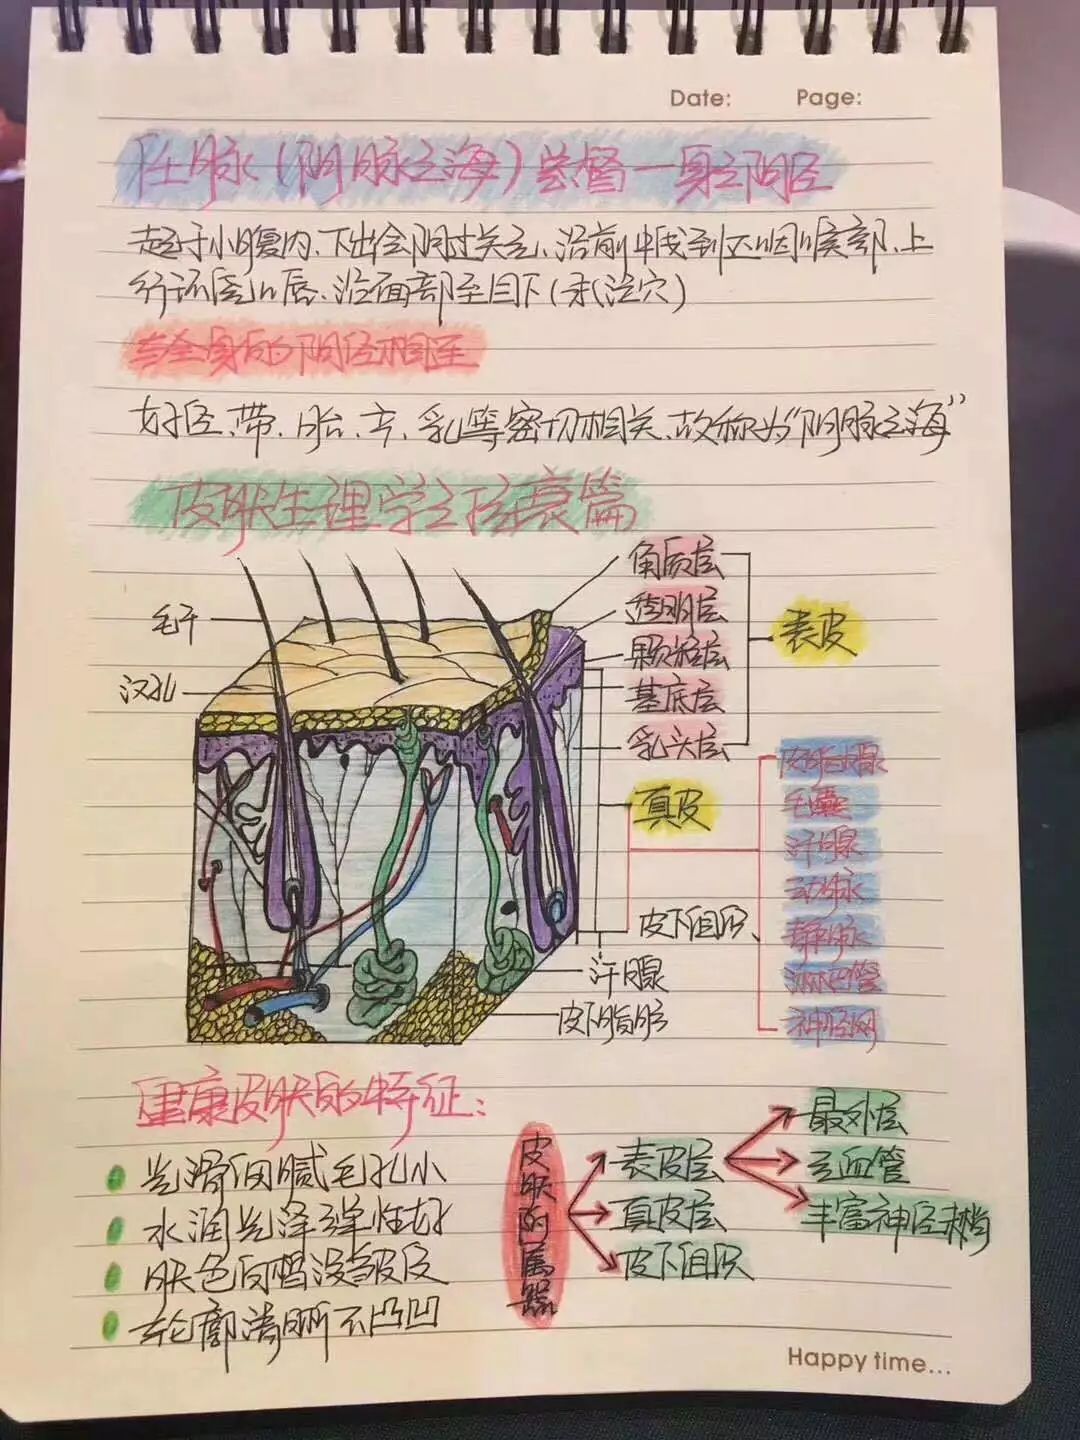 Date: Page:
任脉(阴脉之海)总督一身之阴经
起于小腹内、下出会阴过关元、沿前中线到达咽喉部、上
行环绕口唇、沿面部至目下(承泣穴)
与全身的阴经相连
妊、带、胎、产、乳等密切相关、故称为"阴脉之海"
皮肤生理学之健康篇
角质层
透明层
颗粒层
基底层
乳头层
表皮
毛干
汉孔
真皮
皮脂腺
毛囊
汗腺
动脉
静脉
淋巴管
神经网
皮下组织
汗腺
皮下脂肪
健康皮肤的特征:
光滑细腻毛孔小
水润光泽弹性好
肤色白皙没皱皮
轮廓清晰不凸凹
皮肤附属器
表皮层
真皮层
皮下组织
最外层
无血管
丰富神经末梢
Happy time...